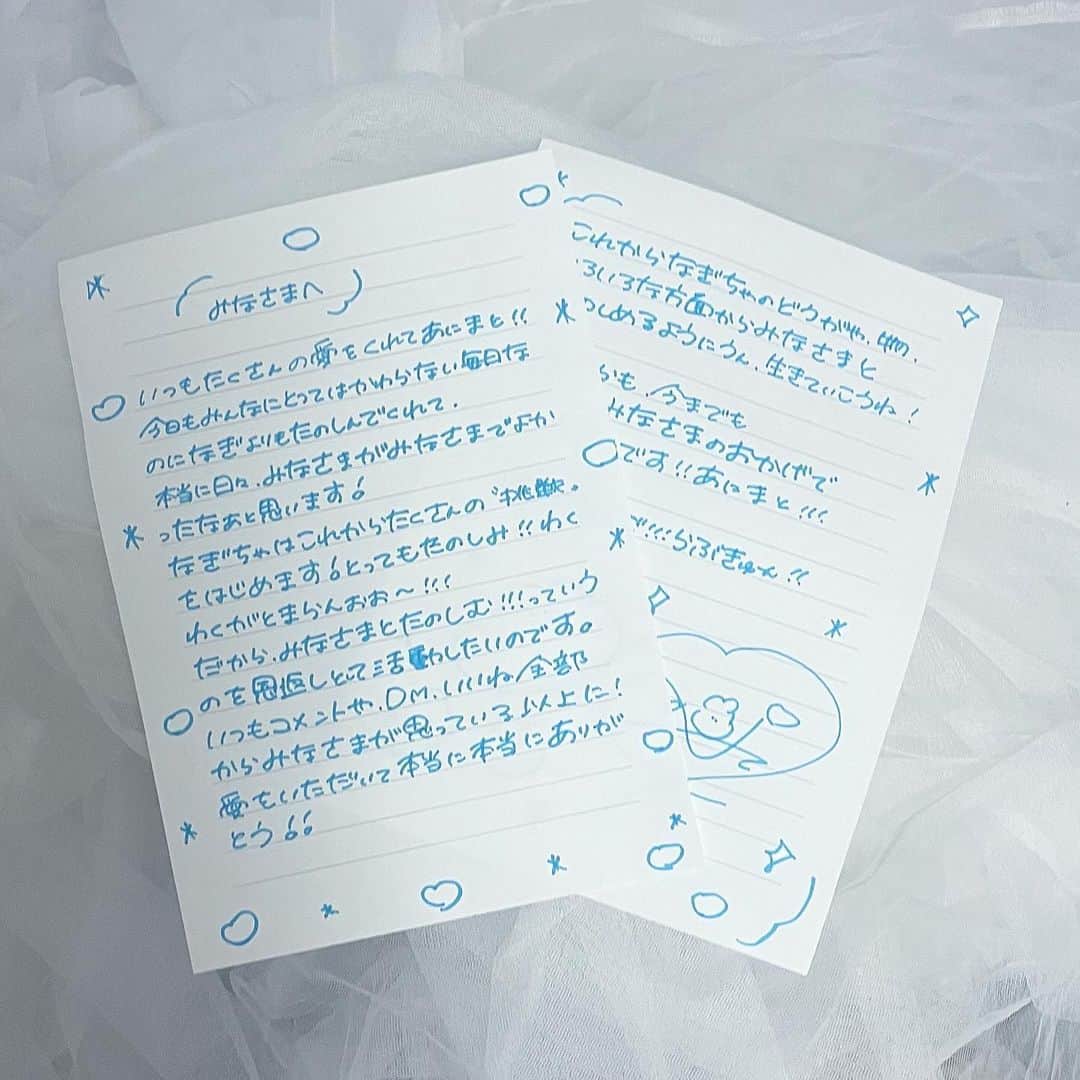 みなさまへ
いつもたくさんの愛をくれてあにまと!!
今日もみんなにとってはかわらない毎日な
のになぎよりもたのしんでくれて、
本当に日々、みなさまがみなさまでよか
ったなあと思います！
なぎちゃはこれからたくさんの〝挑戦〟
をはじめます！とってもたのしみ!!わく
わくがとまらんおお〜!!!
だから、みなさまとたのしむ!!!っていう
のを恩返しとして活動したいのです。
いつもコメントや、DM、いいね、全部
からみなさまが思っている以上に！
愛をいただいて本当に本当にありが
とう！！
これからなぎちゃのどうがや、
ろいろな方面からみなさまと
つめるようにうん、生きていこうね！
らも、今までも
みなさまのおかげで
です!!あにまと!!!
!!!!らぶきゅん!!